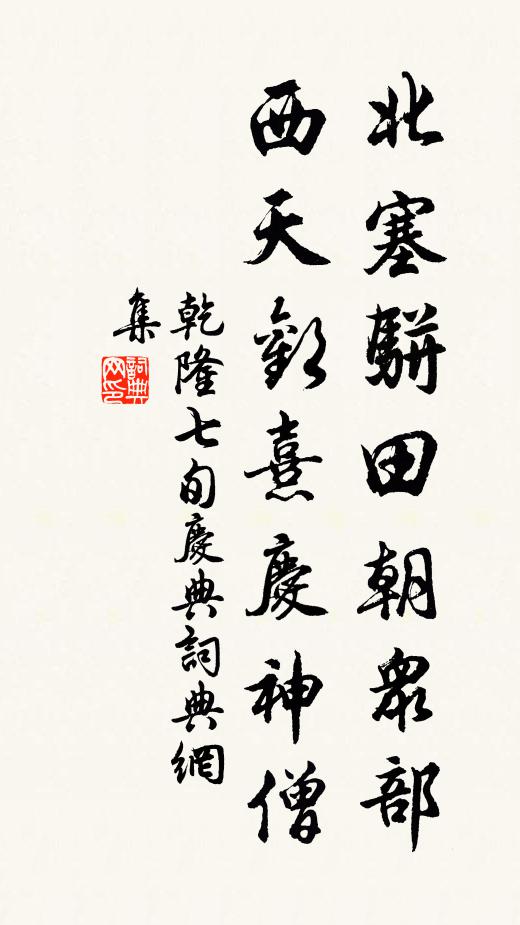 北塞駢田朝衆部
西天歡熹慶神僧
乾隆七旬慶典詞典網
集
詞典
网印